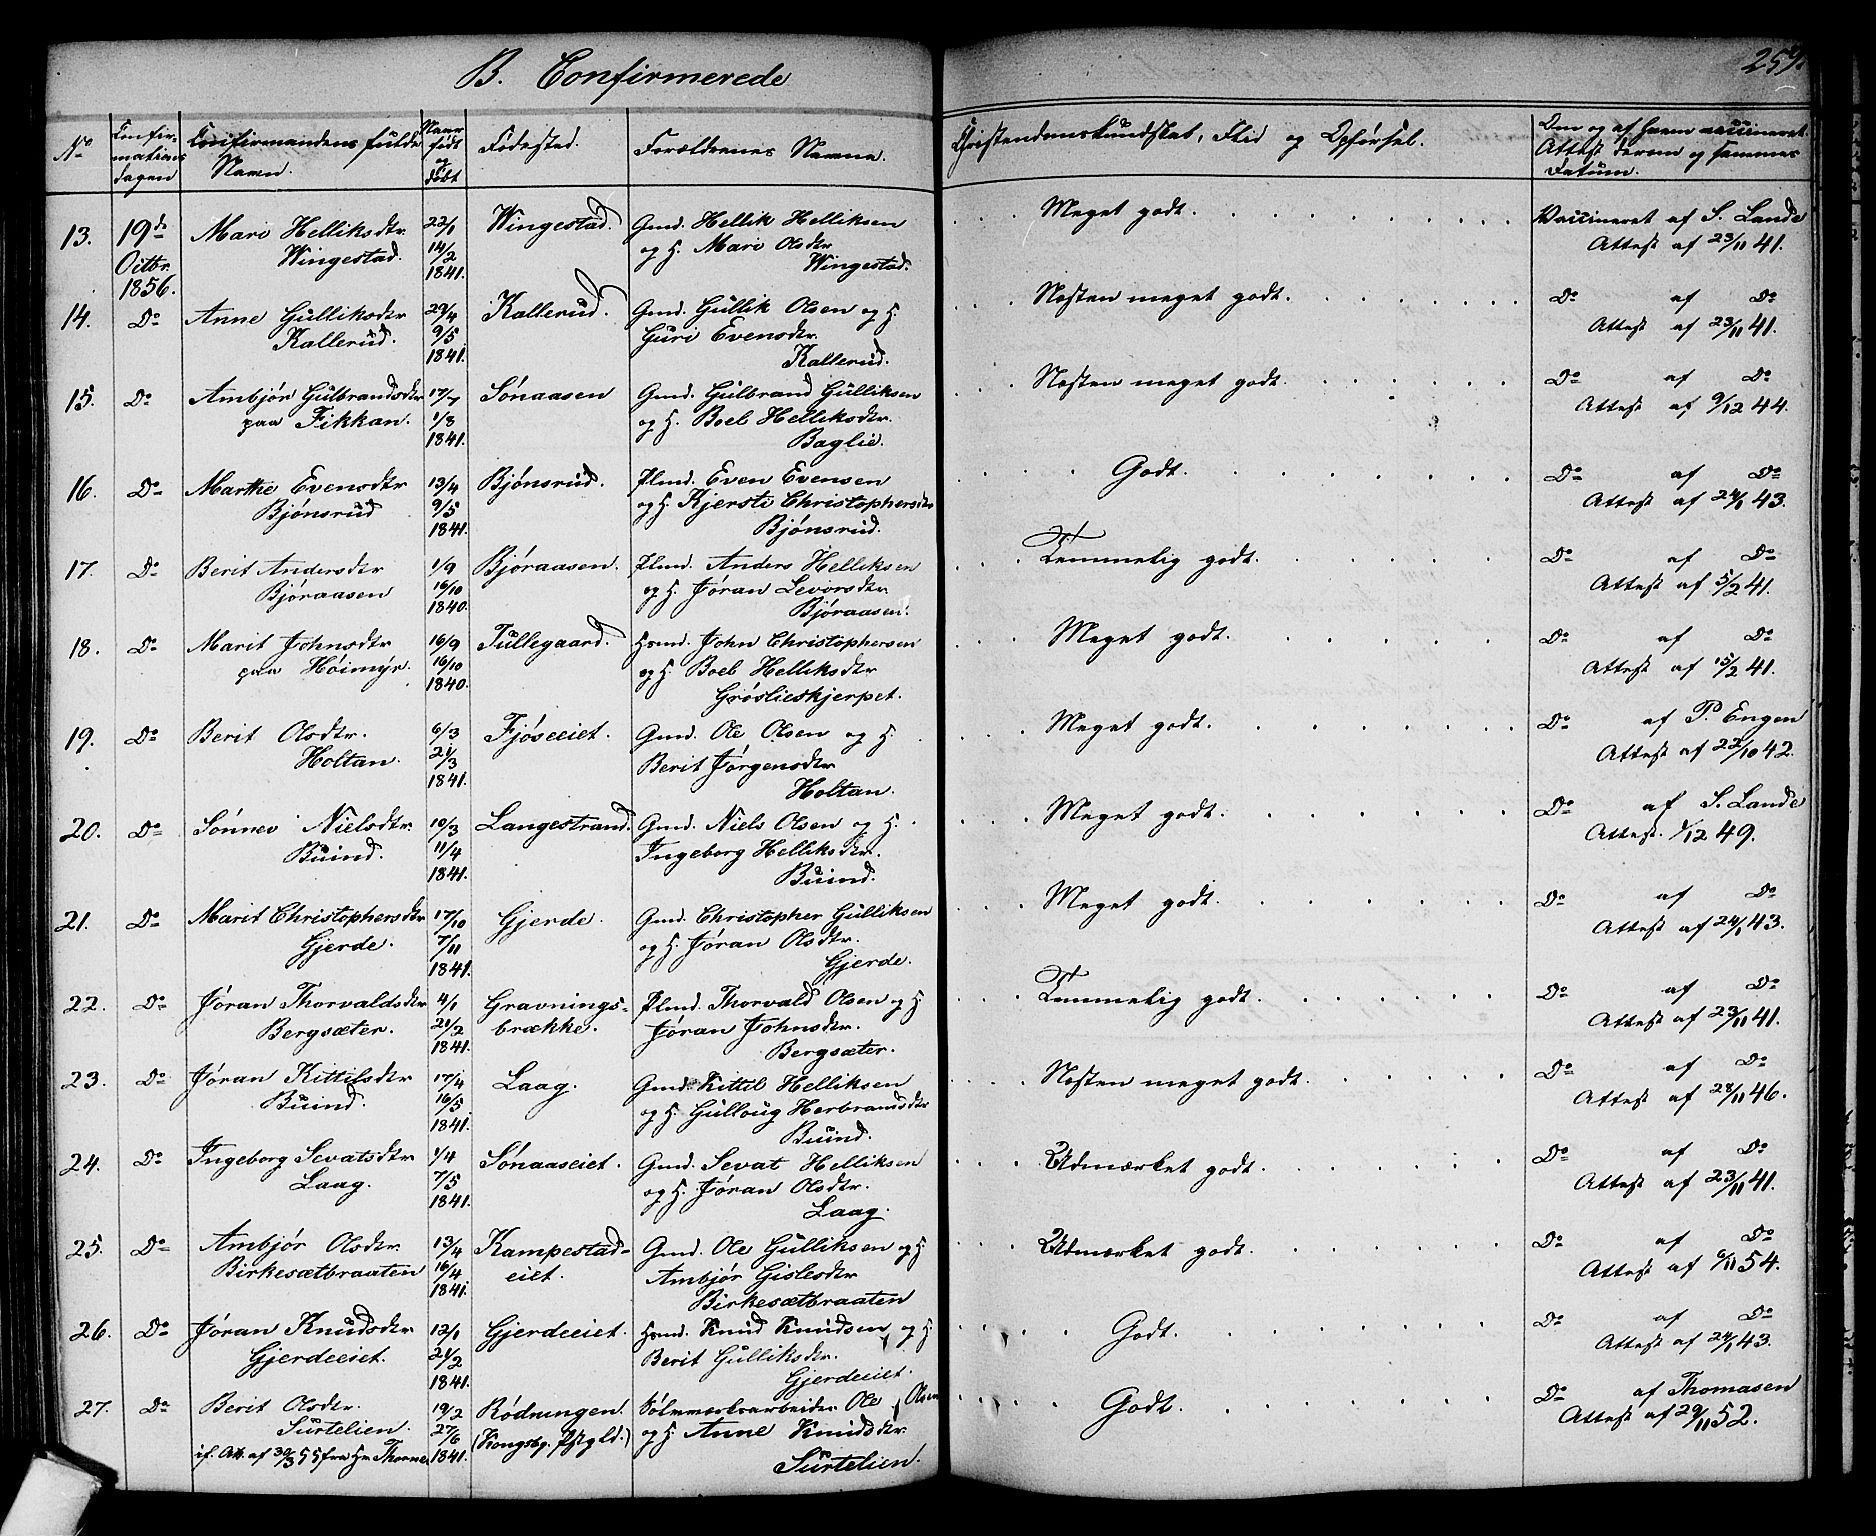 B. Confirmerede
257.
No
Confir-
mations
dagen
Confirmandens fulde
Navn.
Naar
født
og
døbt
Fødested.
Forældrenes Navne.
Christendomskundskab, Flid og Opførsel.
Om og af hvem vaccineret.
Attest derom og sammes
Datum.
13. 19de Octbr. 1856.
Mari Helliksdtr.
Wingestad.
22/1
14/2
1841.
Wingestad.
Gmd. Hellik Helliksen
og H. Mari Olsdtr.
Wingestad.
Meget godt.
Vaccineret af S. Lande
Attest af 23/11 41.
14. Do
Anne Gulliksdtr
Kallerud.
29/4
9/5
1841.
Kallerud.
Gmd. Gullik Olsen og H.
Guri Evensdtr.
Kallerud.
Næsten meget godt.
Do af Do
Attest af 23/11 41.
15. Do
Ambjør Gulbrandsdtr
paa Fikkan.
17/7
1/8
1841.
Sønaasen
Gmd. Gulbrand Gulliksen
og H. Boel Helliksdtr.
Baglie.
Næsten meget godt.
Do af Do
Attest af 9/12 44.
16. Do
Marthe Evensdtr
Bjønsrud
13/4
9/5
1841.
Bjønsrud.
Ilmd. Even Evensen
og H. Kjersti Christophersdtr
Bjønsrud.
Godt.
Do af Do
Attest af 24/1 43.
17. Do
Berit Andersdtr
Bjøraasen
1/9
16/10
1840.
Bjøraasen.
Ilmd. Anders Helliksen
og H. Jøran Levorsdtr
Bjøraasen.
Temmelig godt.
Do af Do
Attest af 5/2 41.
18. Do
Marit Johnsdtr
paa Høimyr.
16/9
16/10
1840.
Tullegaard.
Hsmd. John Christophersen
og H. Boel Helliksdtr
Grøslieskjerpet.
Meget godt.
Do af Do
Attest af 15/2 41.
19. Do
Berit Olsdtr.
Holtan.
6/3
21/3
1841.
Fjøseeiet.
Gmd. Ole Olsen og H.
Berit Jørgensdtr
Holtan.
Meget godt.
Do af P. Engen
Attest af 22/10 42.
20. Do
Sønnev Nielsdtr.
Buind.
10/3
11/4
1841.
Langestrand.
Gmd. Niels Olsen og H.
Ingeborg Helliksdtr.
Buind.
Meget godt.
Do af S. Lande
Attest. 1/12 49.
21. Do
Marit Christophersdtr
Gjerde.
17/10
7/11
1841.
Gjerde.
Gmd. Christopher Gulliksen
og H. Jøran Olsdtr.
Gjerde.
Meget godt.
Do af Do
Attest af 24/1 43.
22. Do
Jøran Thorvaldsdtr
Bergsæter.
4/1
21/2
1841.
Gravnings-
brække.
Ilmd. Thorvald Olsen og H
Jøran Johnsdtr.
Bergsæter.
Temmelig godt.
Do af Do
Attest af 23/11 41.
23. Do
Jøran Kittilsdtr
Buind.
17/4
16/5
1841.
Laag.
Gmd. Kittil Helliksen
og H. Gulloug Herbrandsdtr
Buind.
Næsten meget godt.
Do af Do
Attest af 28/11 46.
24. Do
Ingeborg Sevatsdtr
Laag.
1/4
7/5
1841.
Sønaaseiet.
Gmd. Sevat Helliksen
og H. Jøran Olsdtr.
Laag.
Udmærket godt.
Do af Do
Attest af 23/11 41.
25. Do
Ambjør Olsdtr.
Birkesætbraaten
13/4
16/4
1841.
Kampestad-
eiet.
Gmd. Ole Gulliksen og H
Ambjør Gislesdtr
Birkesætbraaten
Udmærket godt.
Do af Do
Attest af 6/11 54.
26. Do
Jøran Knudsdtr
Gjerdeeiet.
12/1
21/2
1841.
Gjerdeeiet.
Hsmd. Knud Knudsen og H
Berit Gulliksdtr.
Gjerdeeiet.
Godt.
Do af Do
Attest af 24/1 43.
27. Do
Berit Olsdtr.
Surtelien.
if. Att. af 30/3 55 fra Hr
19/2
27/6
1841.
Rødningen.
(Kongsbg. Pstgld.)
Sølvværksarbeider Ole Olsen
og H. Anne Knudsdtr.
Surtelien.
Godt.
Do af Thomasen
Attest af 29/11 52.